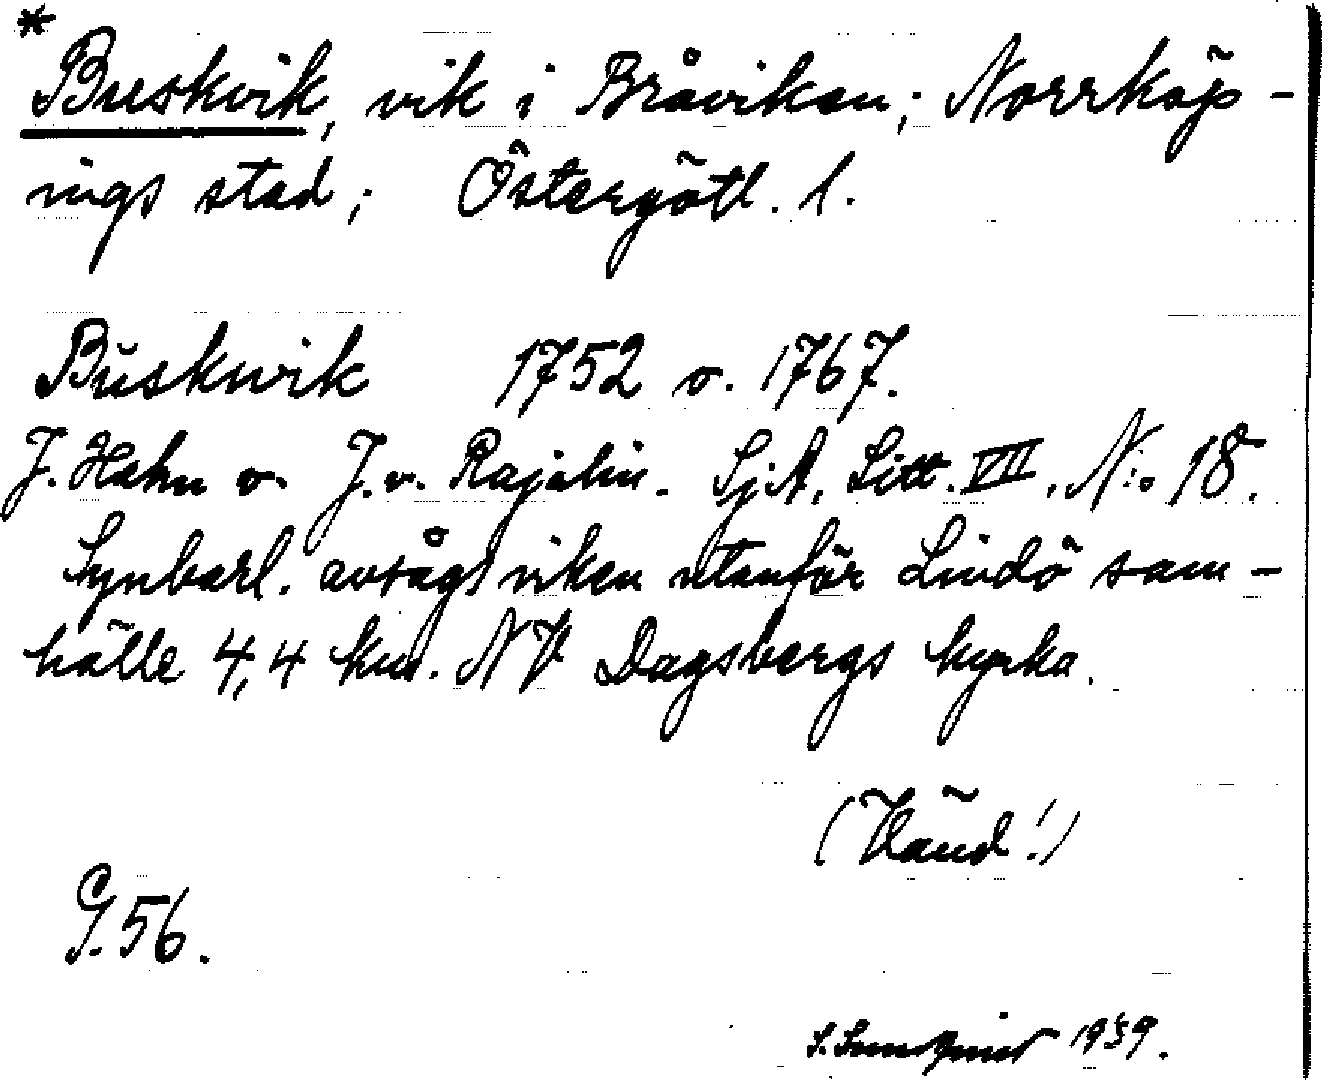 *
Buskvik, vik i Bråviken; Norrköp-
ings stad; Östergötl. l.
Buskwik 1752 o. 1767.
J. Hahn o. J. v. Rajalin. SjA, Litt. VII, N:o 18.
Synbarl. avsågs viken utanför Lindö sam-
hälle 4,4 km. NV Dagsbergs kyrka.
(Vänd!)
G. 56.
S. 1959.